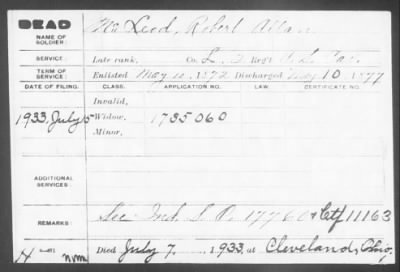 DEAD
NAME OF SOLDIER: McLeod, Robert Allan
SERVICE: Late rank, Co. L, 3 Reg't U.S. Cav.
TERM OF SERVICE: Enlisted May 10, 1872 Discharged May 10 1877
DATE OF FILING. CLASS. APPLICATION NO. LAW. CERTIFICATE NO.
Invalid,
1933, July 5 Widow, 1735060
Minor,
ADDITIONAL SERVICES:
REMARKS: See Ind. S.O. 17760 Ctf 11163
Died July 7, 1933, at Cleveland, Ohio,